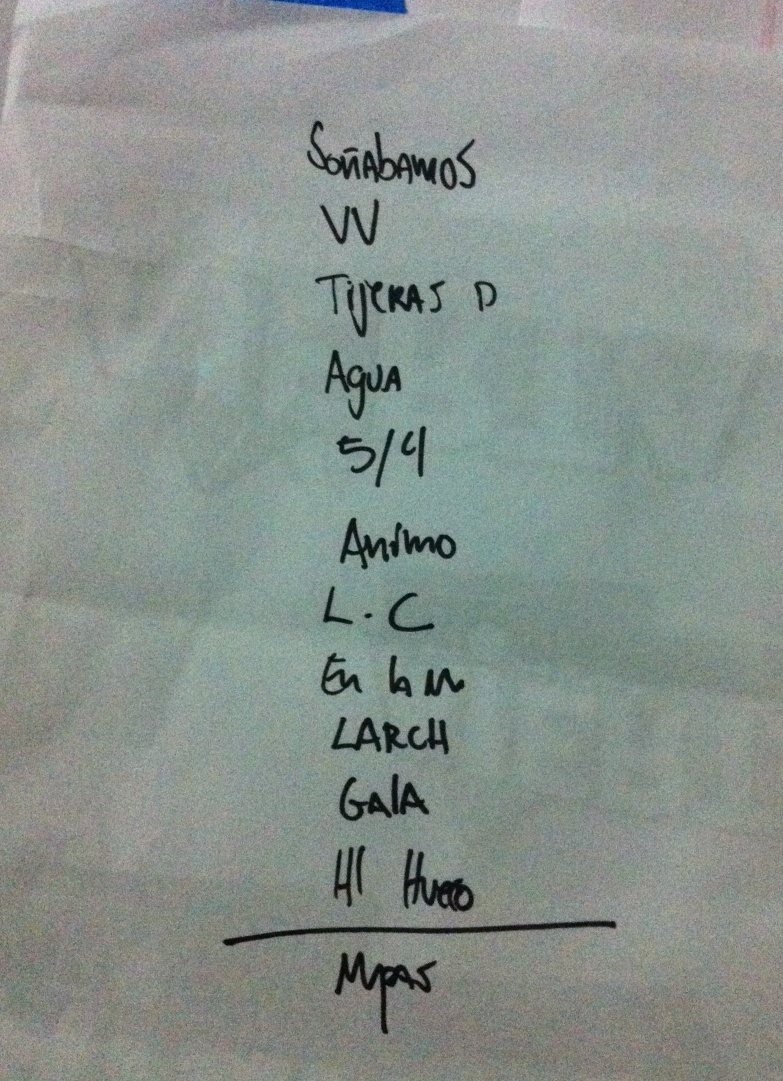 Soñabamos
VV
Tijeras D
Agua
5/4
Animo
L.C
En la m
LARCH
GAlA
Hl Hueso
Mpas